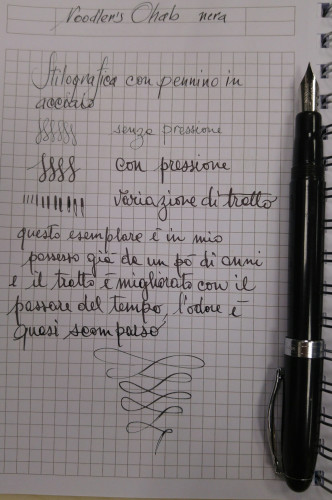 Noodler's Ahab nera
Stilografica con pennino in
acciaio
senza pressione
con pressione
variazione di tratto
questo esemplare è in mio
possesso già da un po' di anni
e il tratto è migliorato con il
passare del tempo, l'odore è
quasi scomparso